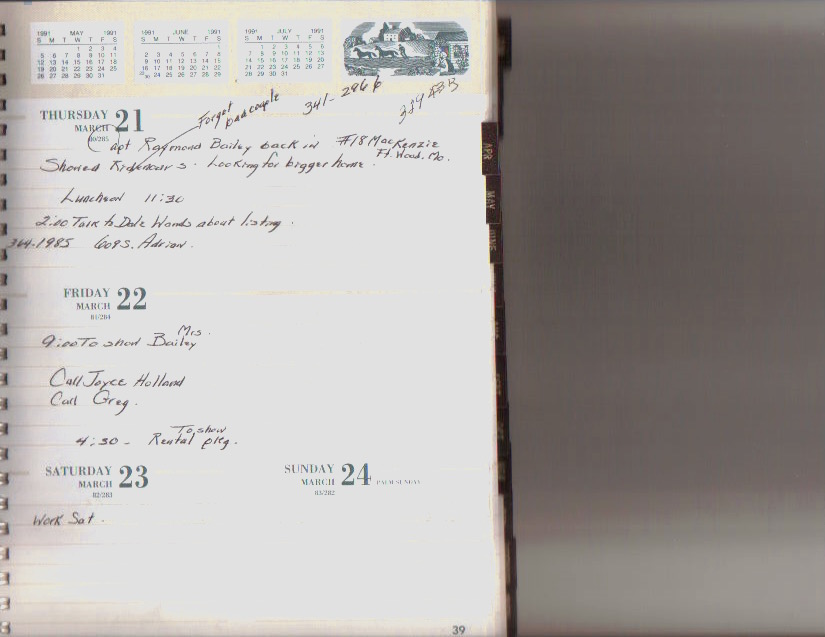 1991 MAY 1991
S M T W T F S
1 2 3 4
5 6 7 8 9 10 11
12 13 14 15 16 17 18
19 20 21 22 23 24 25
26 27 28 29 30 31
1991 JUNE 1991
S M T W T F S
1
2 3 4 5 6 7 8
9 10 11 12 13 14 15
16 17 18 19 20 21 22
23 30 24 25 26 27 28 29
1991 JULY 1991
S M T W T F S
1 2 3 4 5 6
7 8 9 10 11 12 13
14 15 16 17 18 19 20
21 22 23 24 25 26 27
28 29 30 31
Forget bad couple
341-2966
THURSDAY 21
MARCH
80/285
apt Raymond Bailey back in #18 MacKenzie
Ft. Wood. Mo.
Showed Ridenour's. Looking for bigger home.
Luncheon 11:30
2:00 Talk to Dale Woods about listing.
364-1985 609 S. Adrian.
FRIDAY 22
MARCH
81/284
Mrs.
9:00 To show Bailey
Call Joyce Holland
Call Greg.
To show
4:30 - Rental pkg.
SATURDAY 23
MARCH
82/283
SUNDAY 24
MARCH PALM SUNDAY
83/282
Work Sat.
39
APR
MAY
JUNE